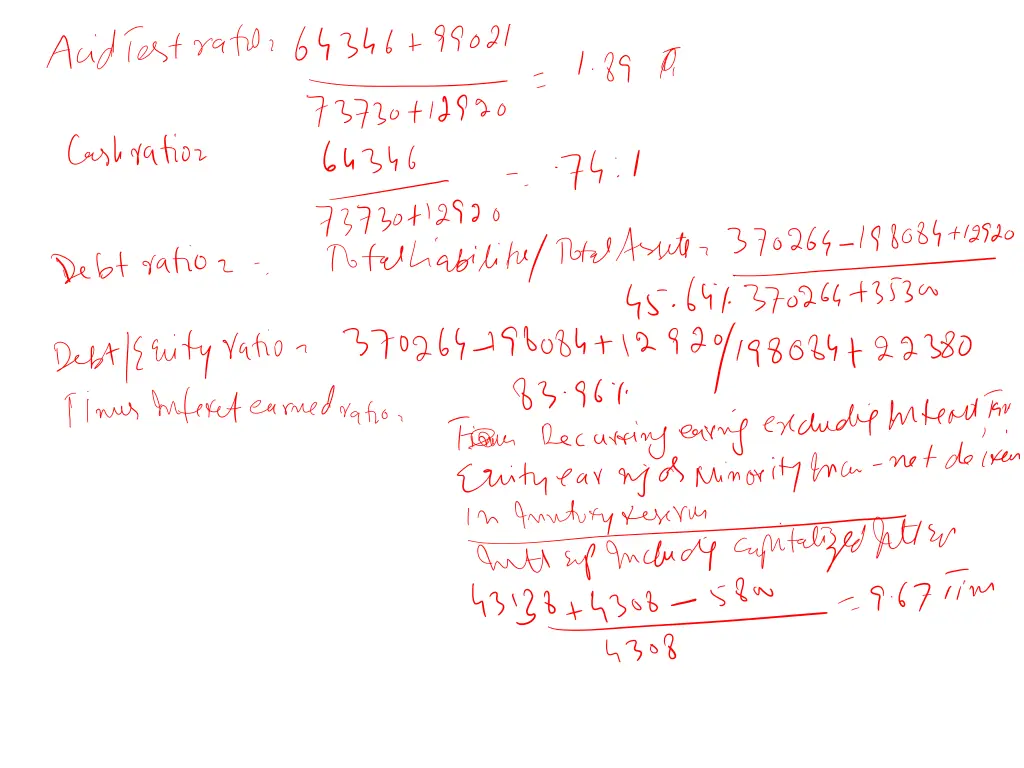 Acid Test ratio = 64346 + 99021
73730+12920
= 1.89
Cash ratio
64346
73730+12920
= .74:1
Debt ratio = Total Liabilitie/ Total Assets = 370264-198084+12920
45.64% 370264+35300
Debt/Equity ratio = 370264-198084+12920/198084+22380
83.96%
Times Interest earned ratio
Recurring earing excluding Interest Tax
Equity earing of Minority - not
in reserves
Including capitalized
43138+4308-5800
4308
= 9.67 Tim